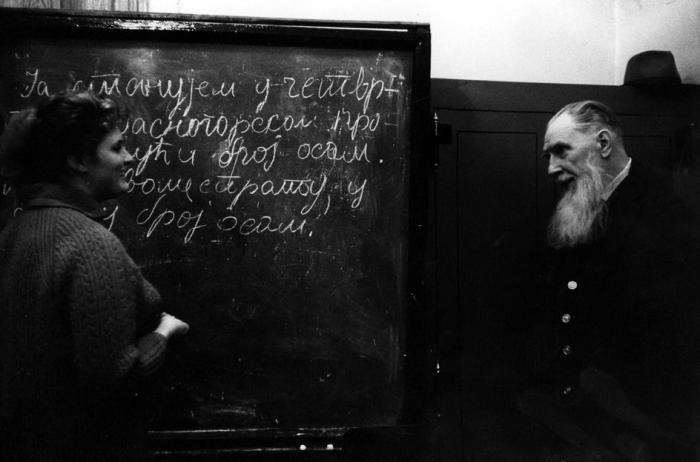 Ја станујем у четвр-
асногорском про-
ући број осам.
воме спрату, у
број осам.